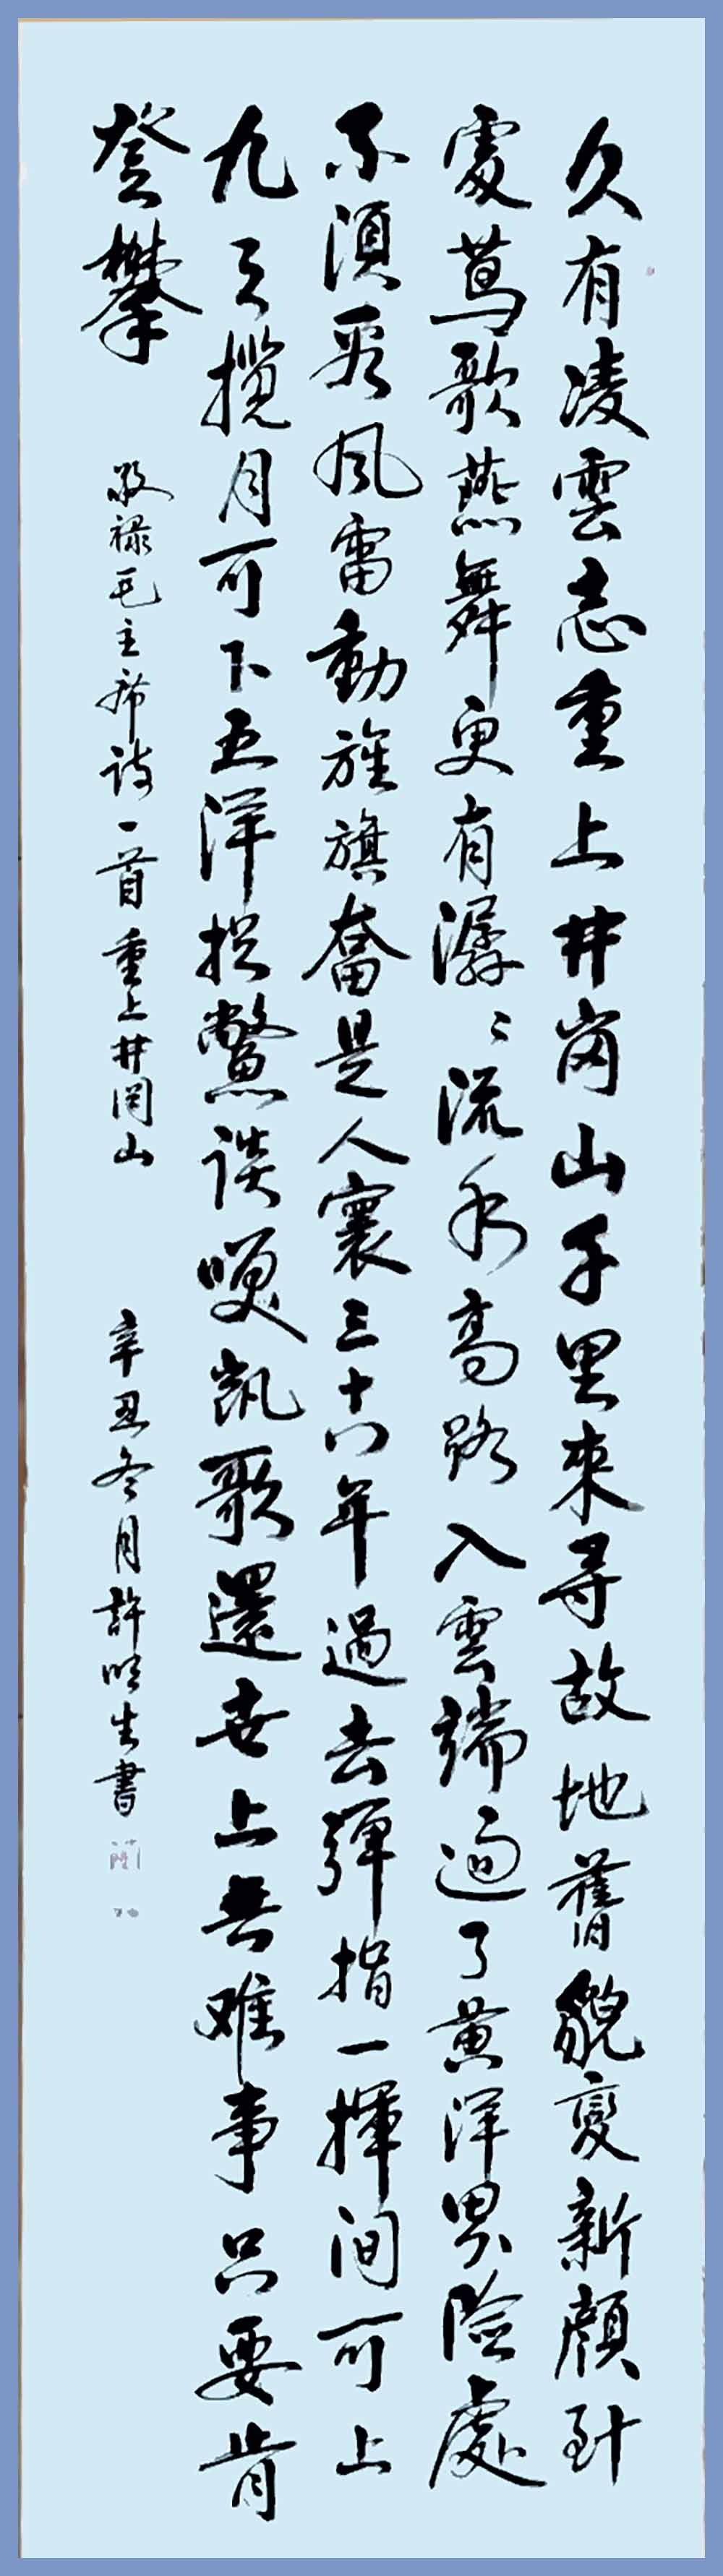 久有凌雲志重上井岗山千里來尋故地舊貌變新顏到
處莺歌燕舞更有潺〻流水高路入雲端過了黄洋界險處
不須看风雷動旌旗奮是人寰三十八年過去彈指一揮间可上
九天攬月可下五洋捉鱉談笑凯歌還世上無难事只要肯
登攀
敬禄毛主席诗一首重上井岡山
辛丑冬月許明生書